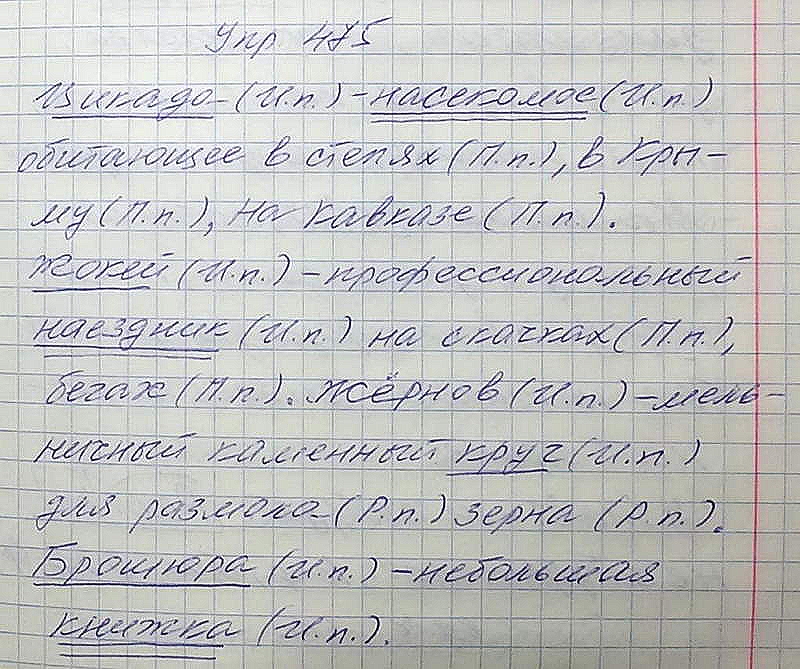 Упр. 475
Цикада - (И.п.) - насекомое (И.п.)
обитающее в степях (П.п.), в Кры-
му (П.п.), на Кавказе (П.п.).
Жокей (И.п.) - профессиональный
наездник (И.п.) на скачках (П.п.),
бегах (П.п.). Жёрнов (И.п.) - мель-
ничный каменный круг (И.п.)
для размола - (Р.п.) зерна (Р.п.).
Брошюра (И.п.) - небольшая
книжка (И.п.).